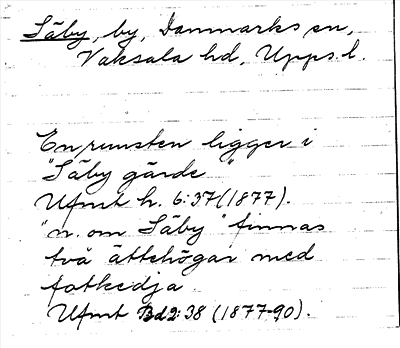 Säby, by, Danmarks sn,
Vaksala hd, Upps. l.
En runsten ligger i
"Säby gärde"
Ufmt h. 6:37 (1877).
"n. om Säby" finnas
två ättehögar med
fotkedja
Ufmt Bd 2:38 (1877-90).